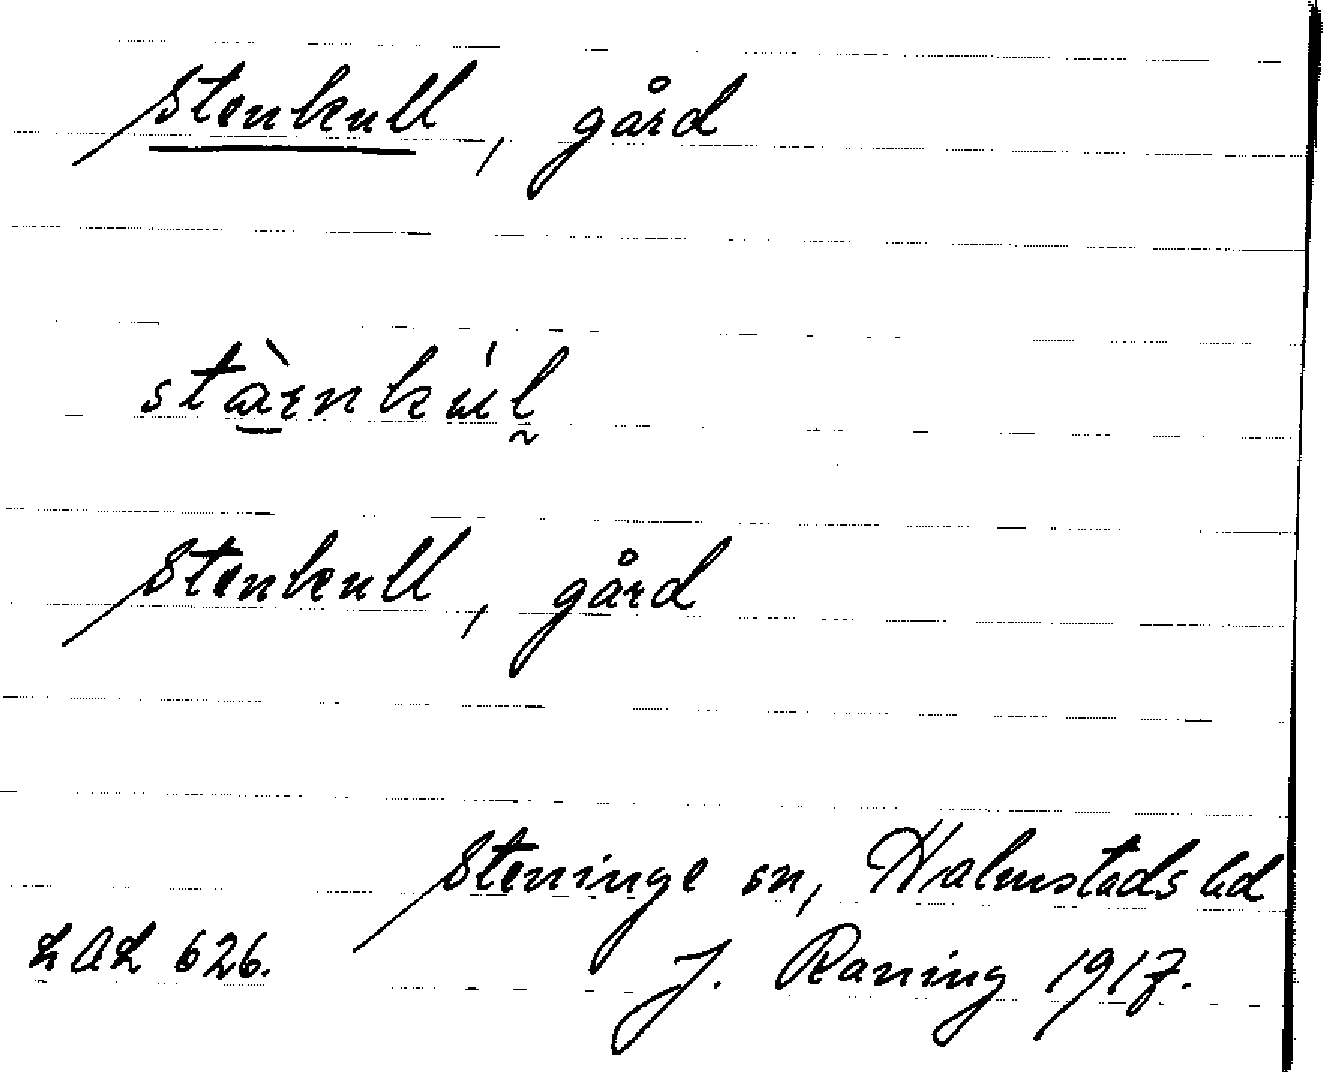 Stenkull, gård
stàrnkúl
Stenkull, gård
Steninge sn, Halmstads hd
LAL 626.
J. Raning 1917.